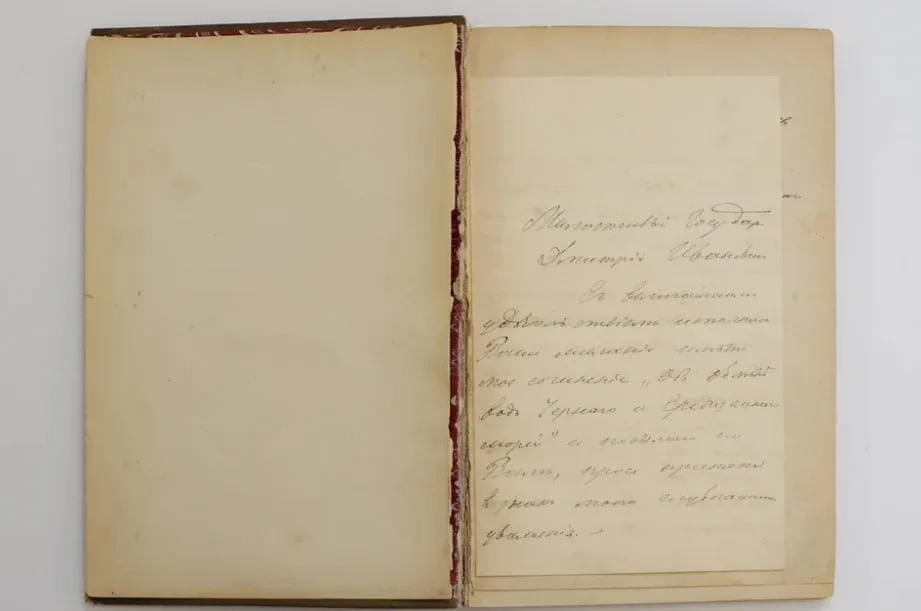 Милостивый Государь
Дмитрій Ивановичъ
Съ величайшимъ
удовольствіемъ исполняю
Ваше желаніе имѣть
мое сочиненіе „Объ обмѣнѣ
водъ Чернаго и Средиземнаго
морей" и посылаю его
Вамъ, прося принять
въ знакъ моего глубочайшаго
уваженія. —